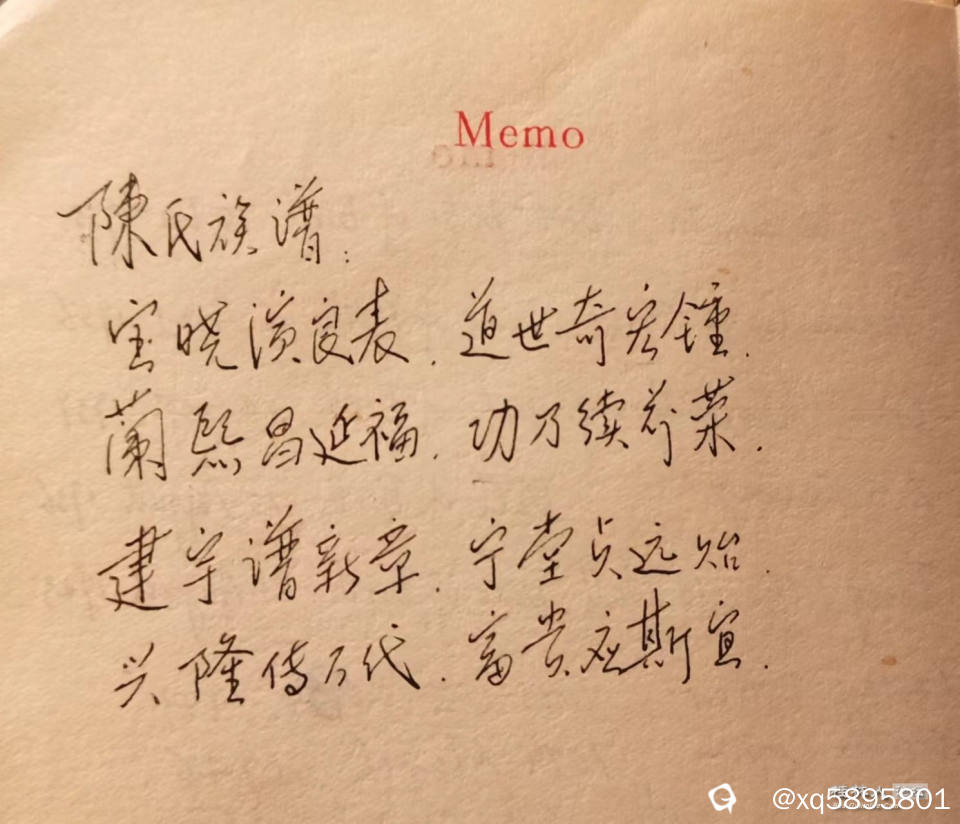 Memo
陳氏族谱:
宝晓演良表.道世奇宏鍾.
蘭熙昌延福.功乃续前荣.
建宇谱新章.宁堂贞远贻.
兴隆传万代.富贵应斯宜.
@xq5895801